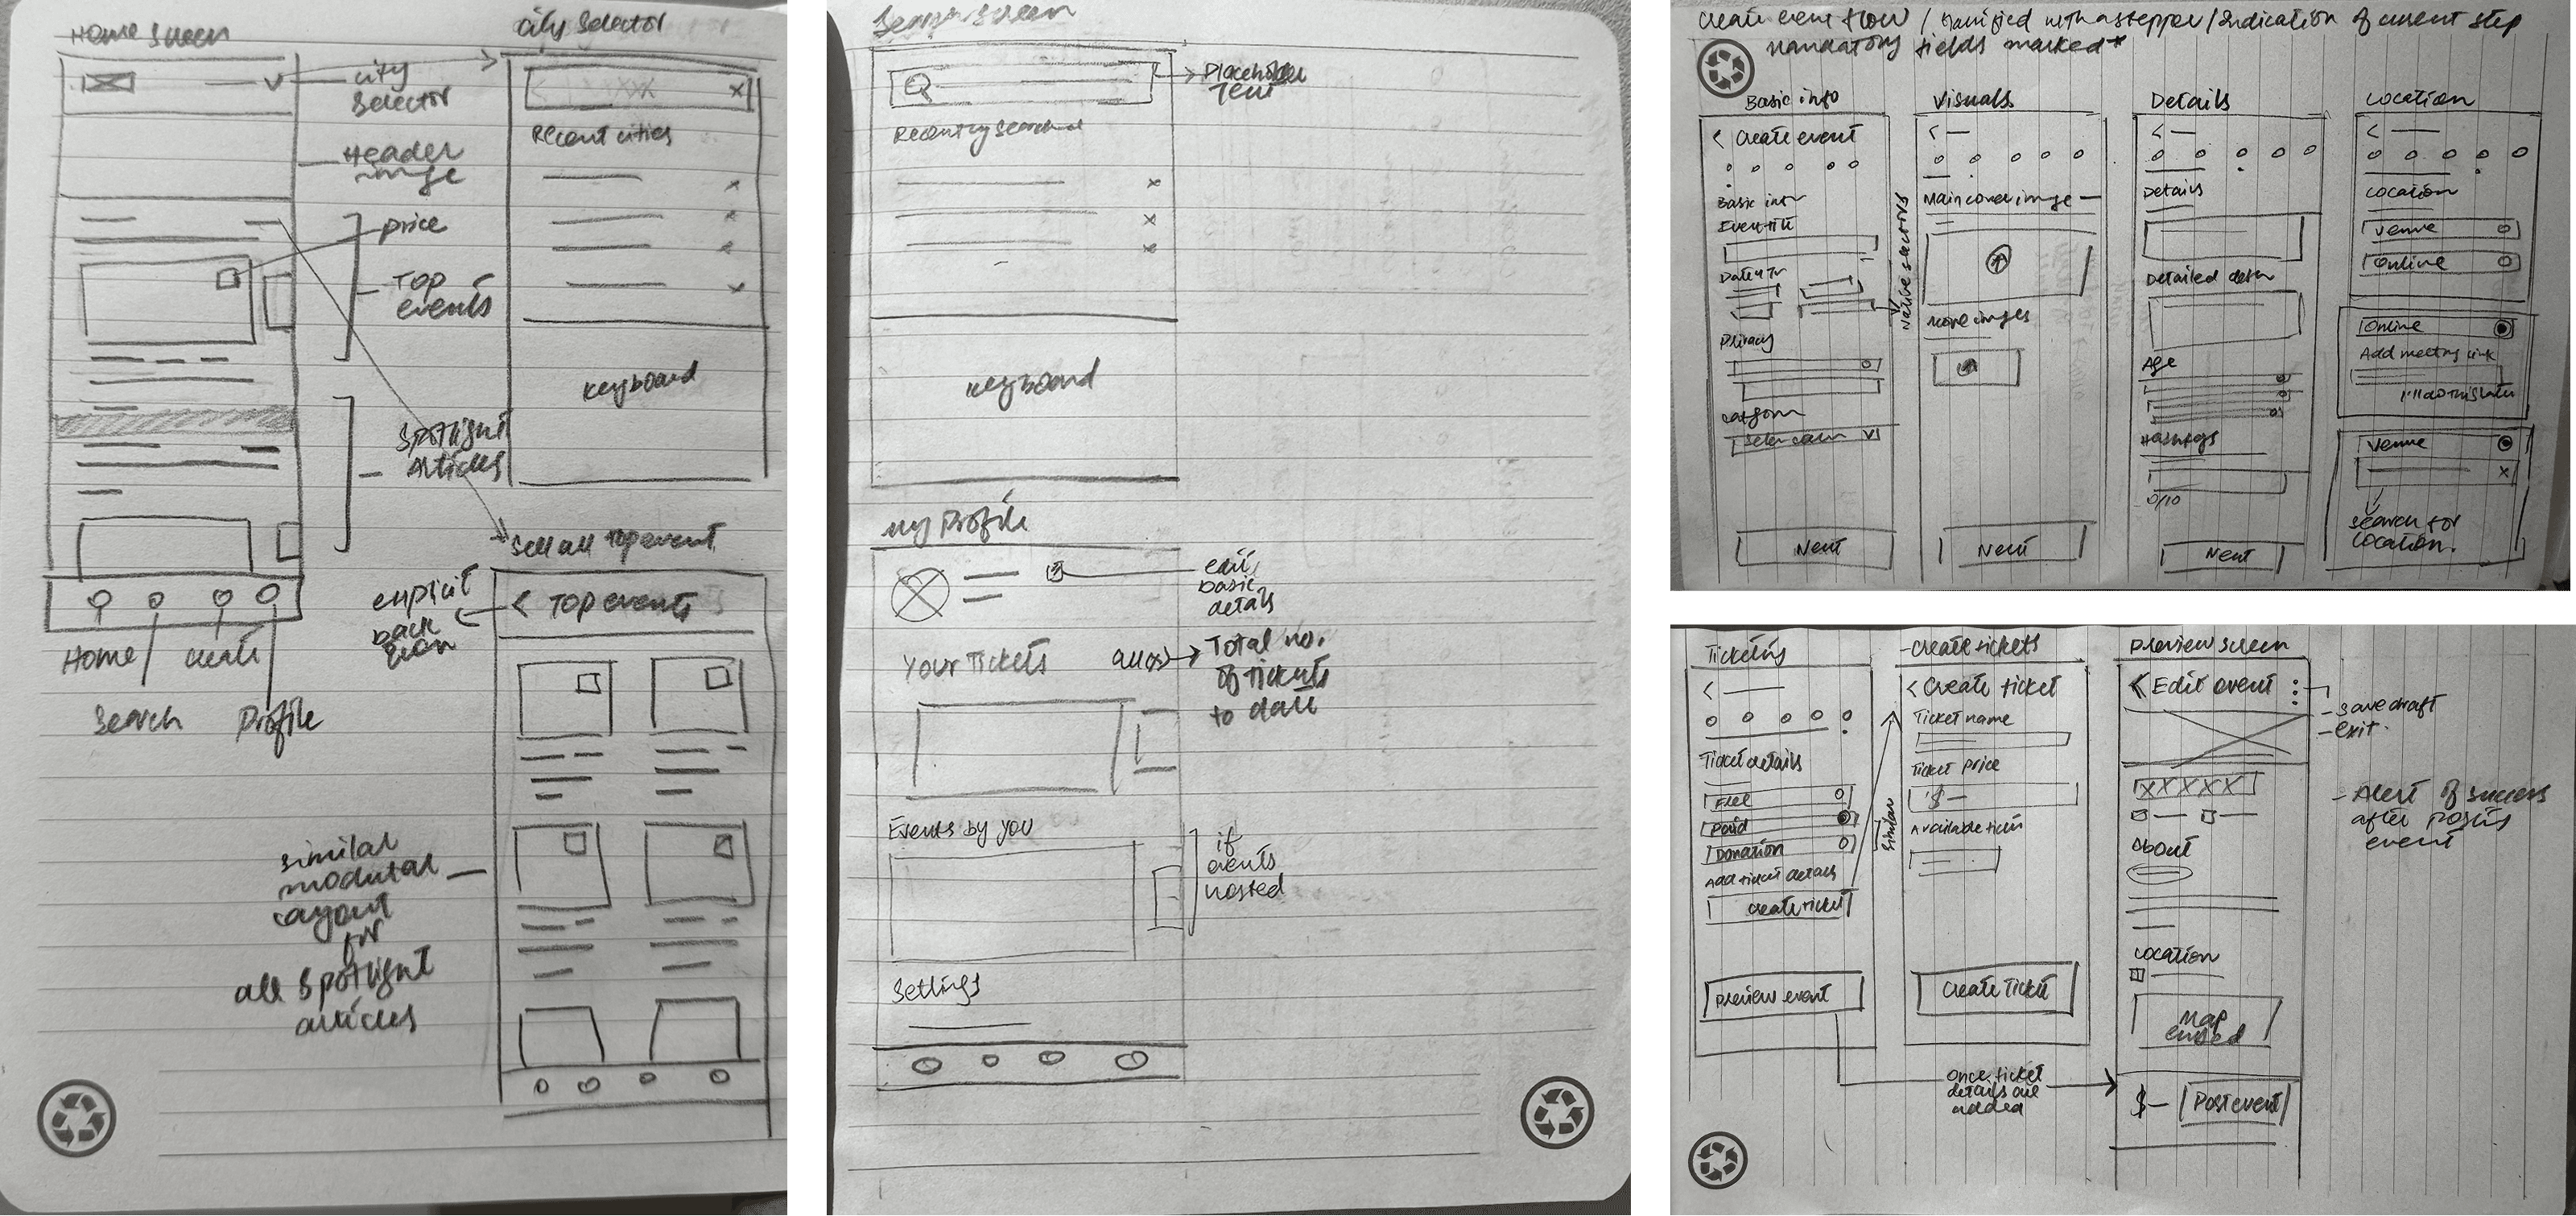 Home Screen
City Selector
city
selector
Header
image
price
Top
events
Spotlight
Articles
Home
Create
Search
Profile
Recent cities
Keyboard
See all Top event
explicit
back
< Top events
similar
modular
layout
for
all Spotlight
articles
Search screen
Placeholder
Text
Recently searched
Keyboard
My Profile
edit
basic
details
Your Tickets
Total no.
of tickets
to date
Events by you
if
events
hosted
Settings
Create event flow / Gamified with a stepper / Indication of current step
mandatory fields marked*
Basic info
< Create event
Basic info
Event title
Privacy
Category
Next
Native selectors
Visuals
<
Main cover image
More images
Next
Details
<
Details
Age
Hashtags
0/10
Next
Location
<
Location
Venue
Online
Online
Add meeting link
I'll do this later
Venue
x
search for
location.
Ticketing
<
Ticket details
Free
Paid
Donation
Add ticket details
Create ticket
Preview event
similar
Create tickets
< Create ticket
Ticket name
Ticket price
$ —
Available tickets
Create Ticket
once ticket
details are
added
Preview screen
< Edit event
- save draft
- exit.
XXXXX
About
Location
Map
embed
$ — Post event
- Alert of success
after posting
event